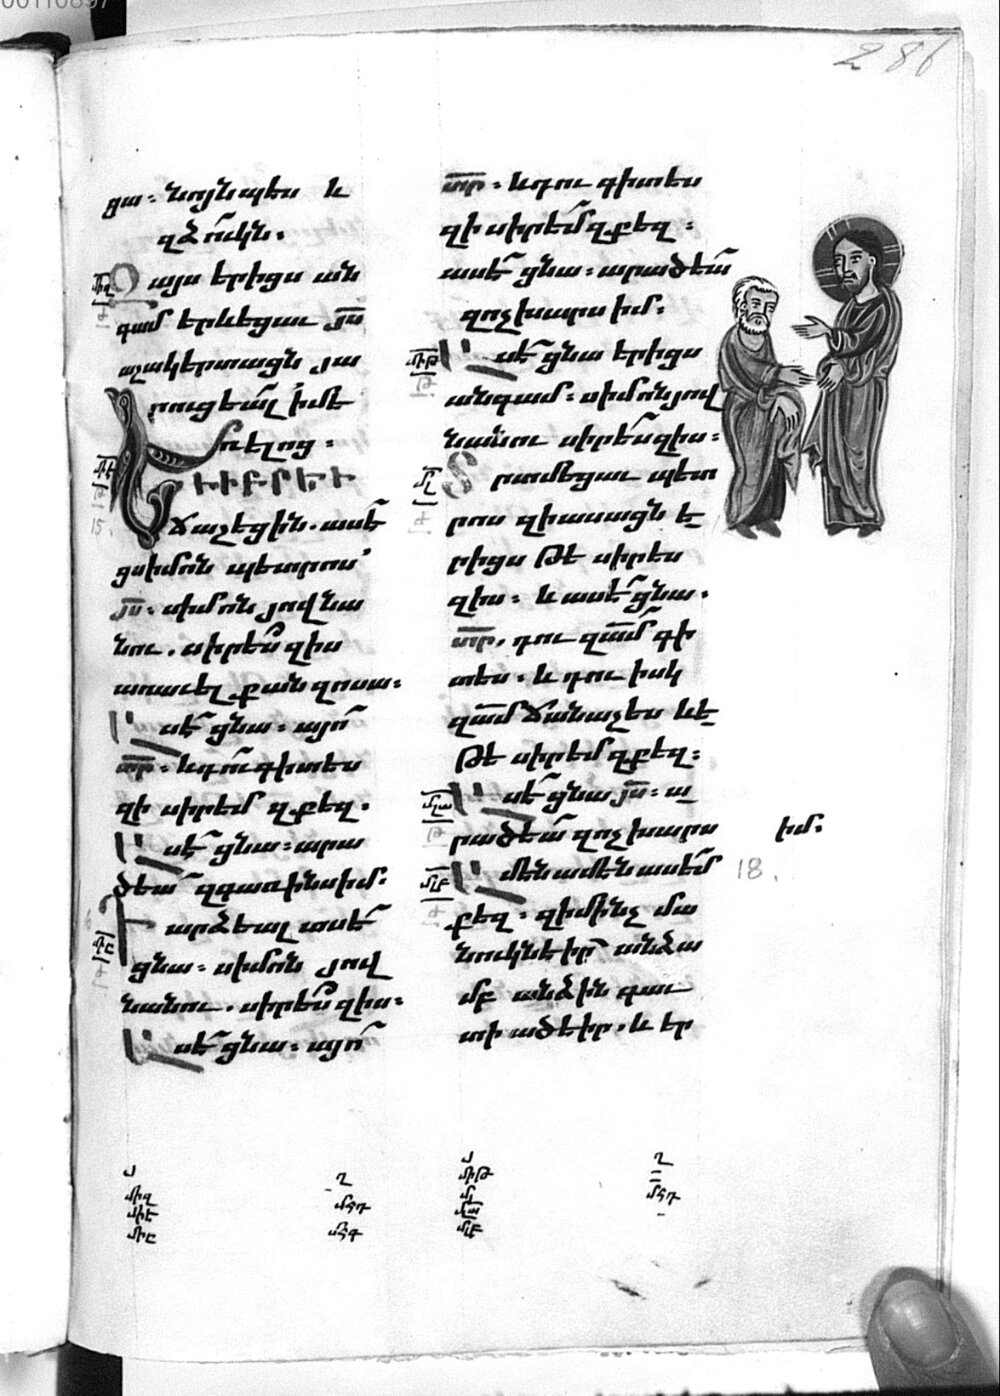 286
ցա։ նոյնպէս և
զձուկն.
Զայս երիցս ան
գամ երևեցաւ յս
աշակերտացն յա
րուցեալ ի մե
ռելոց։
Եւ
ԻԲՐԵՒ
ճաշեցին. ասէ
ցսիմոն պետրոս՝
յս։ սիմոն յովնա
նու. սիրես զիս
առաւել քան զոսա։
Ասէ ցնա։ այո
տր։ և դու գիտես
զի սիրեմ զքեզ.
Ասէ ցնա։ արա
ծեա զգառինս իմ.
Դարձեալ ասէ
ցնա։ սիմոն յով
նանու. սիրես զիս։
Ասէ ցնա։ այո
տր։ և դու գիտես
զի սիրեմ զքեզ։
ասէ ցնա։ արածեա
զոչխարս իմ։
Ասէ ցնա երիցս
անգամ։ սիմոն յով
նանու սիրես զիս։
Տրտմեցաւ պետ
րոս զի ասացն ե
րիցս թէ սիրես
զիս։ և ասէ ցնա.
տր. դու զամ գի
տես. և դու իսկ
զամ ճանաչես եւե
թէ սիրեմ զքեզ։
Ասէ ցնա յս։ ա
րածեա զոչխարս իմ։
Ամեն ամեն ասեմ
18.
քեզ։ զի մինչ մա
նուկն էիր անձա
մբ անձին գաւ
տի ածէիր. և եր
միզ
միէ
միը
ղ
մհդ
մհգ
միթ
մլ
մլա
մլբ
ղ
մհդ